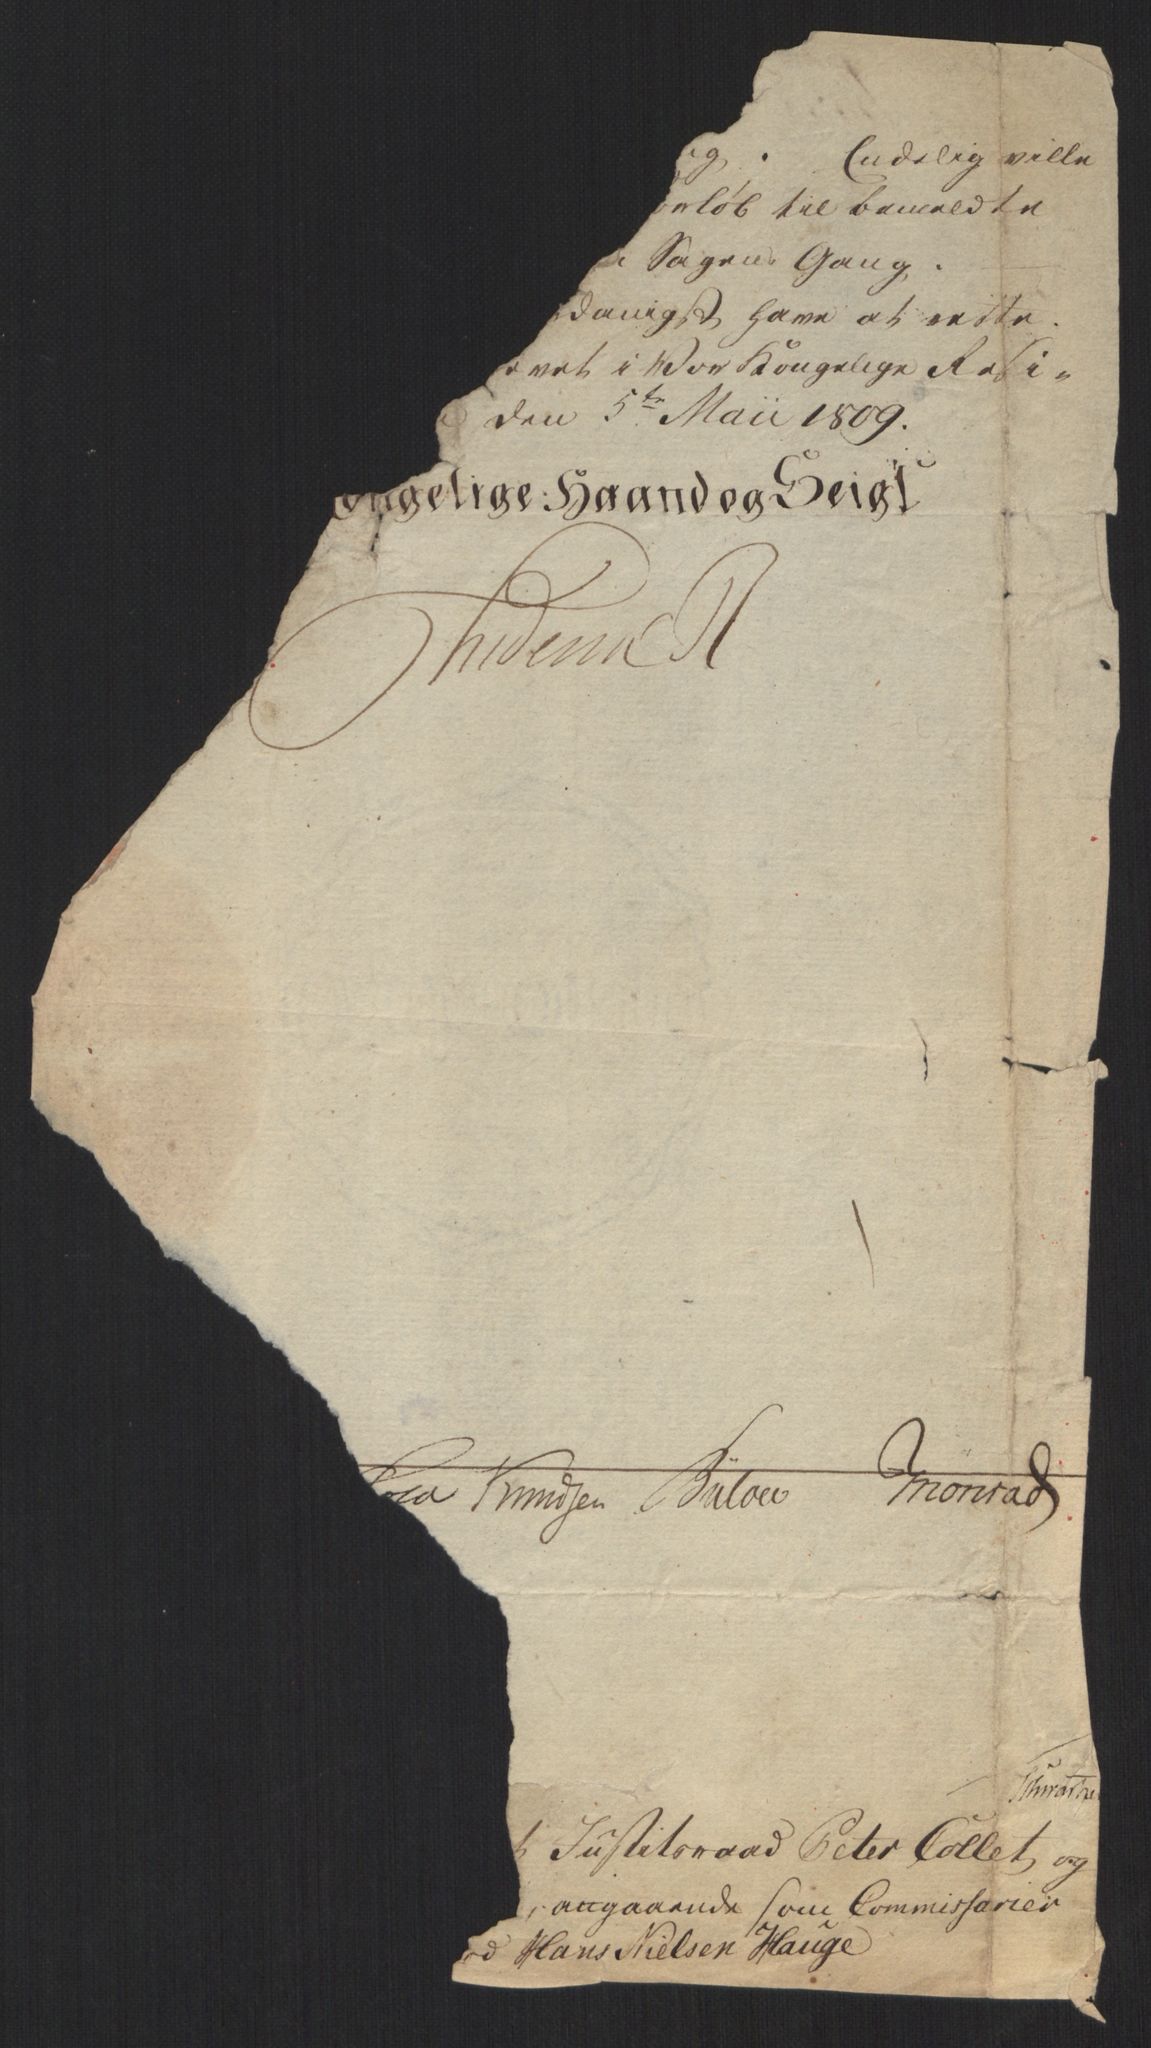 ig. Endelig ville
orløb til bemeldte
i Sagens Gang.
danigst have at rette.
evet i Vor Kongelige Resi-
den 5te Maii 1809.
ongelige Haand og Seigl
Friderich R
Knudsen Bülow Monrad
t Justitsraad Peter Collet, og
angaaende som Commissarier
od Hans Nielsen Hauge